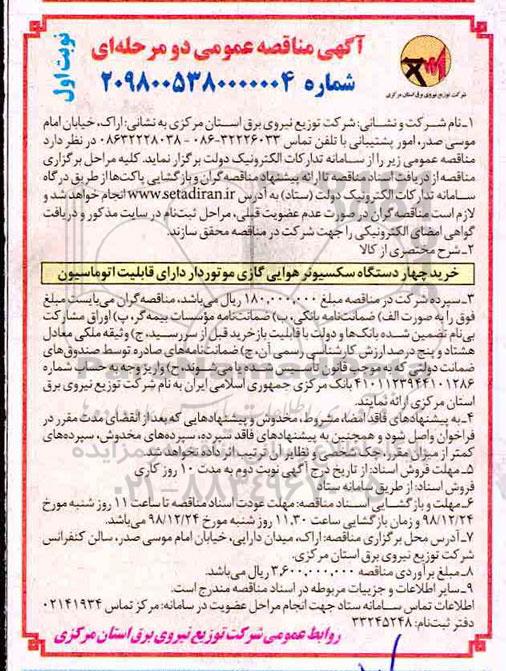 نوبت اول
آگهی مناقصه عمومی دو مرحله‌ای
شماره ۲۰۹۸۰۰۵۳۸۰۰۰۰۰۰۴
شرکت توزیع نیروی برق استان مرکزی
۱-نام شرکت و نشانی: شرکت توزیع نیروی برق استان مرکزی به نشانی: اراک، خیابان امام
موسی صدر، امور پشتیبانی با تلفن تماس ۳۲۲۲۶۰۳۳-۰۸۶ - ۰۸۶۳۲۲۲۸۰۳۸ در نظر دارد
مناقصه عمومی زیر را از سامانه تدارکات الکترونیک دولت برگزار نماید. کلیه مراحل برگزاری
مناقصه از دریافت اسناد مناقصه تا ارائه پیشنهاد مناقصه گران و بازگشایی پاکت‌ها از طریق درگاه
سامانه تدارکات الکترونیک دولت (ستاد) به آدرس www.setadiran.ir انجام خواهد شد و
لازم است مناقصه گران در صورت عدم عضویت قبلی، مراحل ثبت‌نام در سایت مذکور و دریافت
گواهی امضای الکترونیکی را جهت شرکت در مناقصه محقق سازند.
۲-شرح مختصری از کالا
خرید چهار دستگاه سکسیونر هوایی گازی موتوردار دارای قابلیت اتوماسیون
۳-سپرده شرکت در مناقصه مبلغ ۱۸۰,۰۰۰,۰۰۰ ریال می‌باشد، مناقصه گران می‌بایست مبلغ
فوق را به صورت الف) ضمانت‌نامه بانکی، ب) ضمانت‌نامه مؤسسات بیمه‌گر، پ) اوراق مشارکت
بی‌نام تضمین شده بانک‌ها و دولت با قابلیت بازخرید قبل از سررسید، ج) وثیقه ملکی معادل
هشتاد و پنج درصد ارزش کارشناسی رسمی آن، چ) ضمانت‌نامه‌های صادره توسط صندوق‌های
ضمانت دولتی که به موجب قانون تأسیس شده یا می‌شوند، ح) واریز وجه به حساب شماره
۴۱۰۱۱۲۳۹۴۴۱۰۱۲۸۶ بانک مرکزی جمهوری اسلامی ایران به نام شرکت توزیع نیروی برق
استان مرکزی ارائه نمایند.
۴-به پیشنهادهای فاقد امضا، مشروط، مخدوش و پیشنهادهایی که بعد از انقضای مدت مقرر در
فراخوان واصل شود و همچنین به پیشنهادهای فاقد سپرده، سپرده‌های مخدوش، سپرده‌های
کمتر از میزان مقرر، چک شخصی و نظایر آن ترتیب اثر داده نخواهد شد.
۵-مهلت فروش اسناد: از تاریخ درج آگهی نوبت دوم به مدت ۱۰ روز کاری
فروش اسناد: از طریق سامانه ستاد
۶-مهلت و بازگشایی اسناد مناقصه: مهلت عودت اسناد مناقصه تا ساعت ۱۱ روز شنبه مورخ
۹۸/۱۲/۲۴ و زمان بازگشایی ساعت ۱۱.۳۰ روز شنبه مورخ ۹۸/۱۲/۲۴ می‌باشد.
۷-آدرس محل برگزاری مناقصه: اراک، میدان دارایی، خیابان امام موسی صدر، سالن کنفرانس
شرکت توزیع نیروی برق استان مرکزی.
۸-مبلغ برآوردی مناقصه ۳,۶۰۰,۰۰۰,۰۰۰ ریال می‌باشد.
۹-سایر اطلاعات و جزییات مربوطه در اسناد مناقصه مندرج است.
اطلاعات تماس سامانه ستاد جهت انجام مراحل عضویت در سامانه: مرکز تماس ۰۲۱۴۱۹۳۴
دفتر ثبت‌نام: ۳۳۲۴۵۲۴۸
روابط عمومی شرکت توزیع نیروی برق استان مرکزی